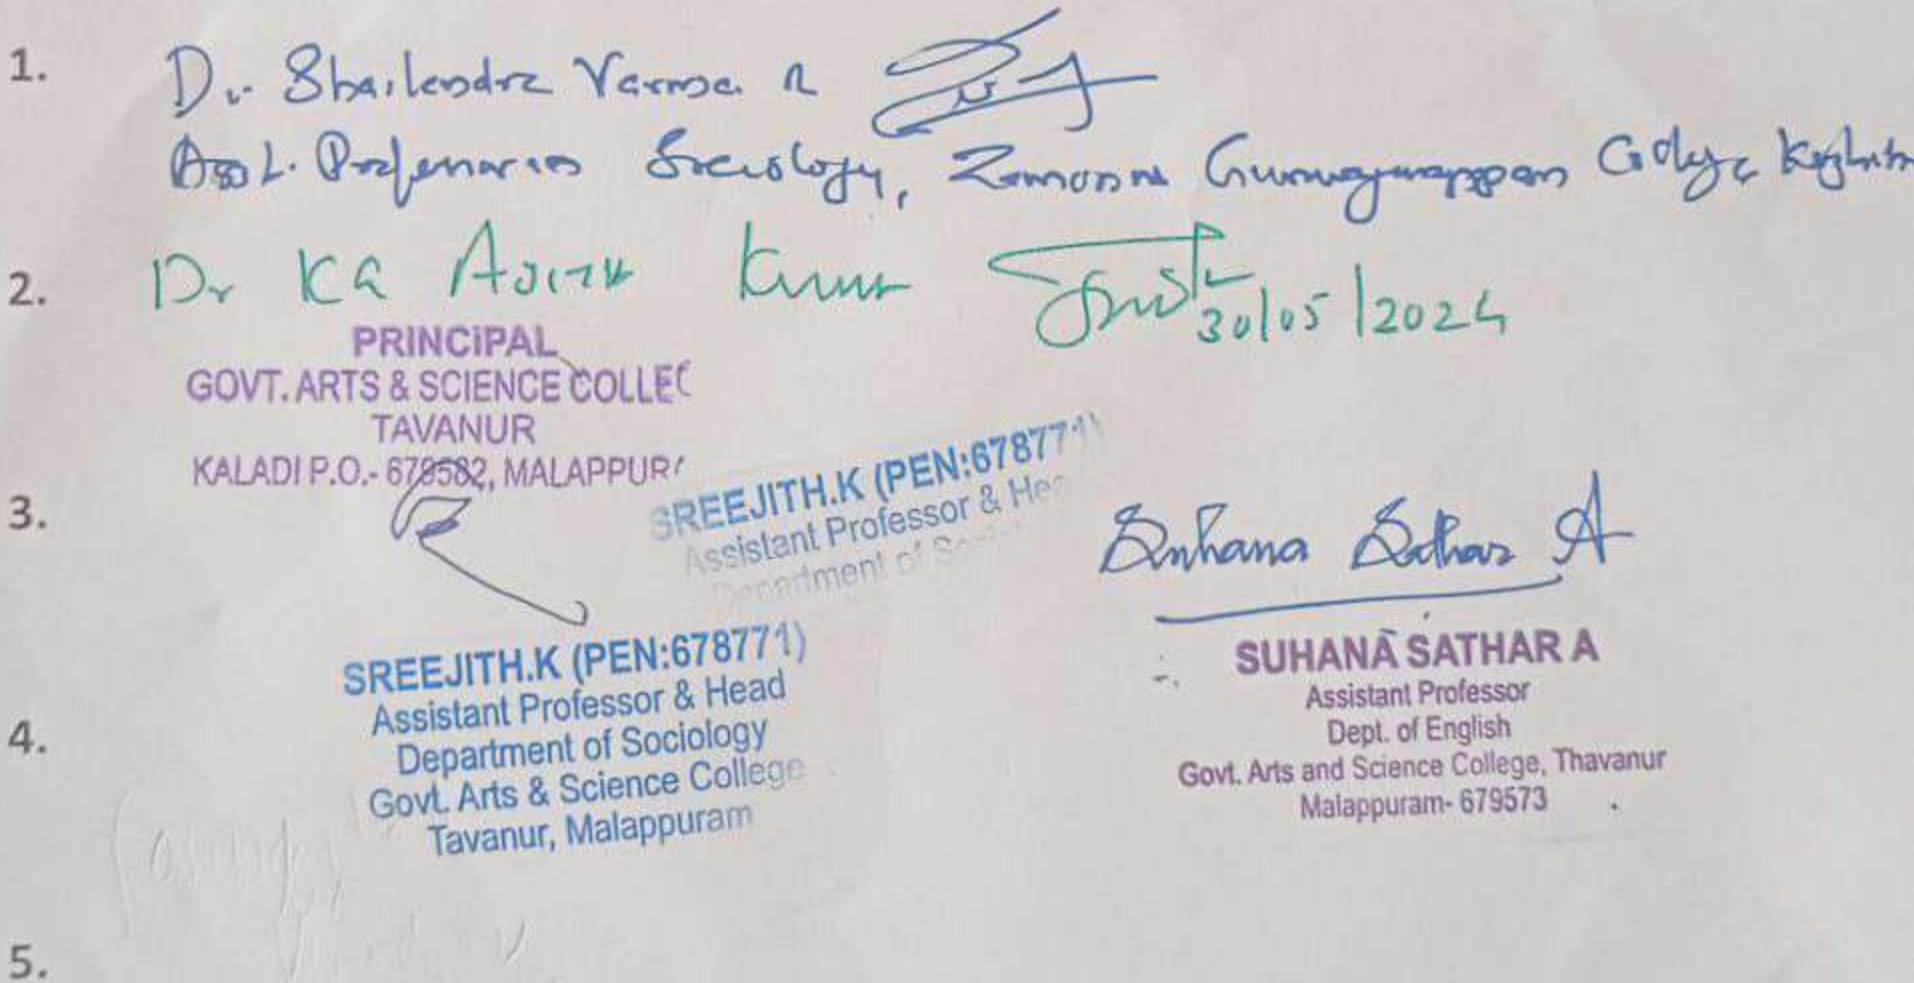 1. Dr. Shailendra Varma R
Asst. Professor in Sociology, Zamorins Guruvayurappan College Kozhikode
2. Dr KG Ajith Kumar 30/05/2024
PRINCIPAL
GOVT. ARTS & SCIENCE COLLEG
TAVANUR
KALADI P.O.- 679582, MALAPPURA
3.
SREEJITH.K (PEN:678771)
Assistant Professor & Hea
Department of Soci
Suhana Sathar A
SREEJITH.K (PEN:678771)
Assistant Professor & Head
Department of Sociology
Govt. Arts & Science College
Tavanur, Malappuram
SUHANA SATHAR A
Assistant Professor
Dept. of English
Govt. Arts and Science College, Thavanur
Malappuram- 679573
4.
5.